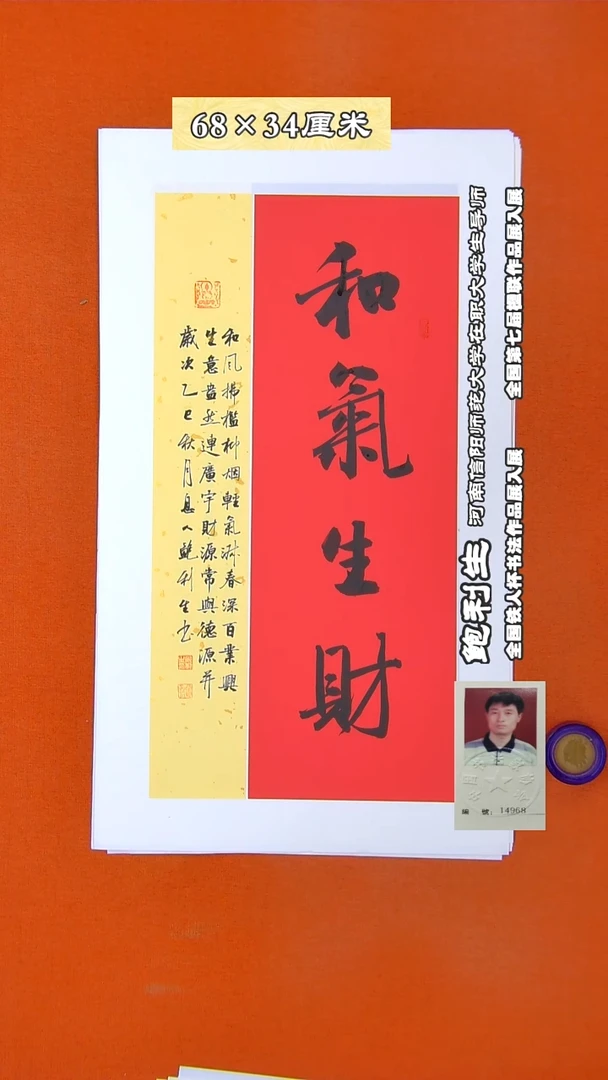 68×34厘米
和氣生財
和风拂檻柳烟輕氣淑春深百業興
生意盎然連廣宇財源常與德源并
歲次乙巳秋月息人鮑利生书
鲍利生 河南信阳师范大学在职大学生导师
全国铁人杯书法作品展入展 全国第七届楹联作品展入展
編 號: 14968